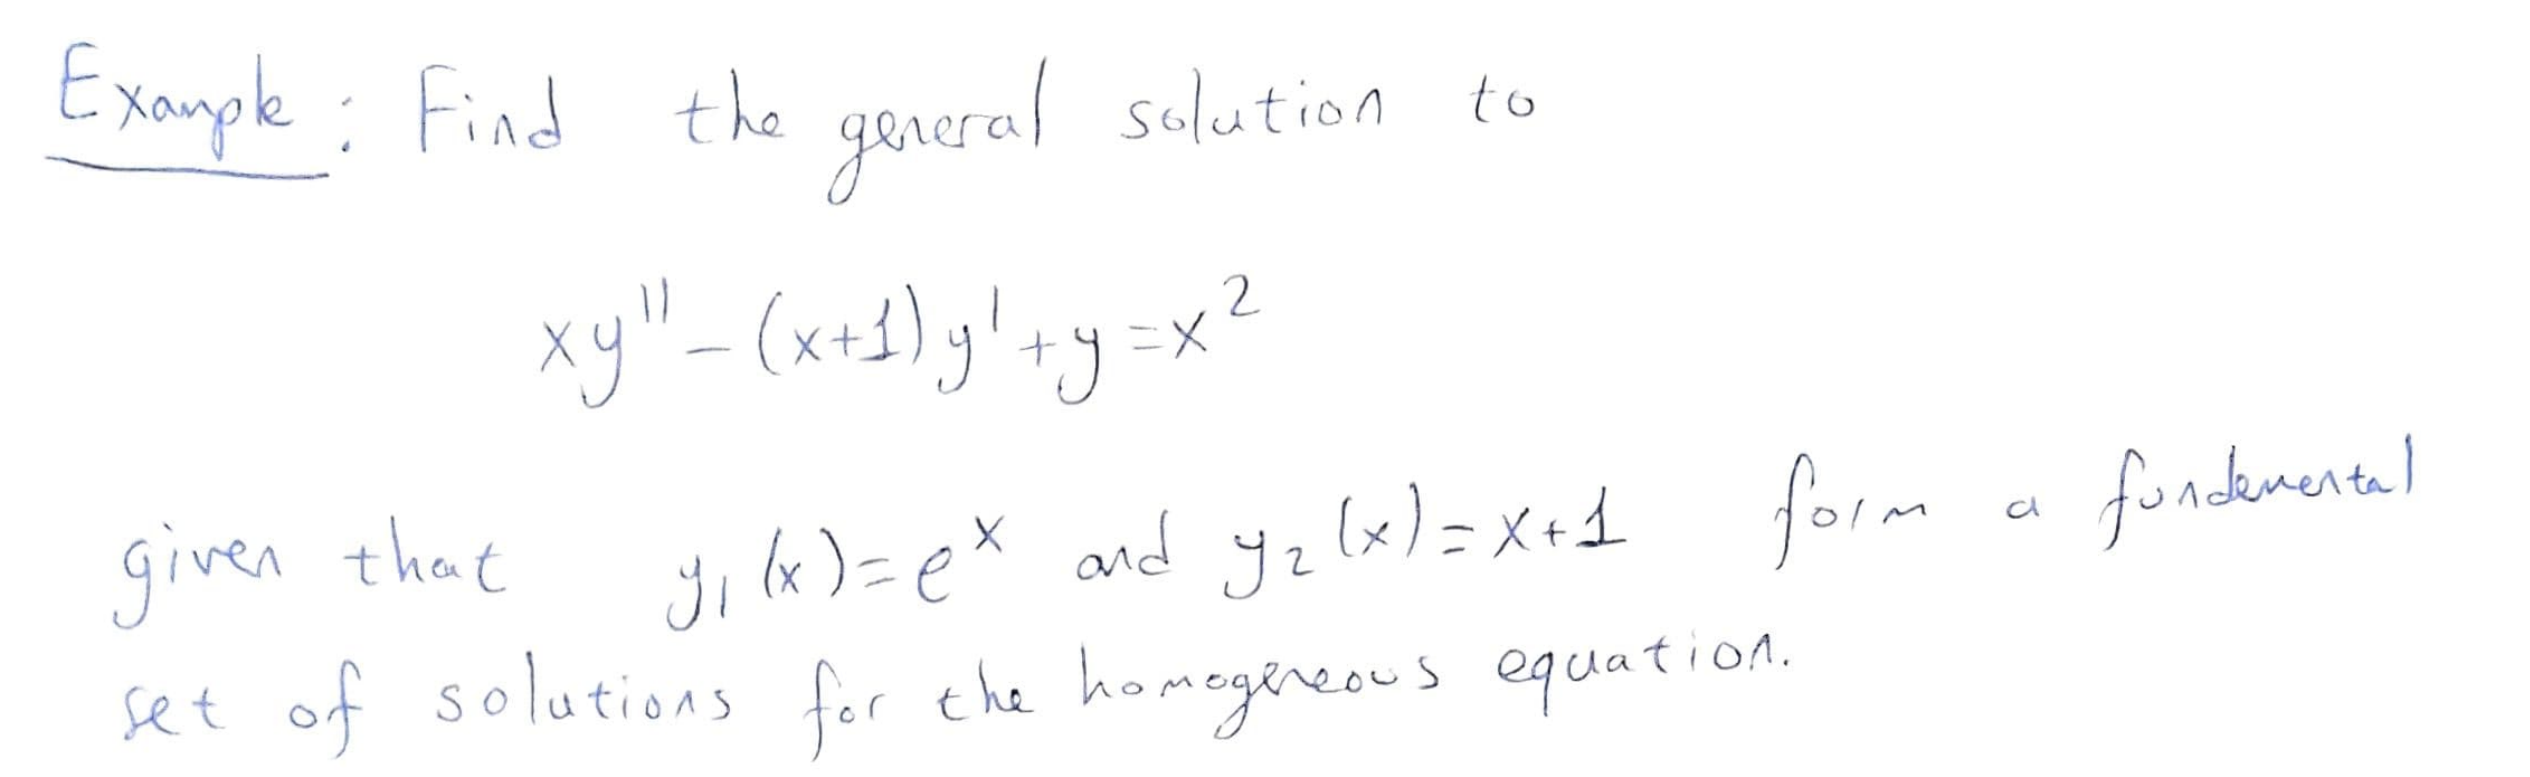 Example: Find the general solution to
xy" - (x+1)y' + y = x²
given that y₁(x) = eˣ and y₂(x) = x+1 form a fundemental
set of solutions for the homogeneous equation.